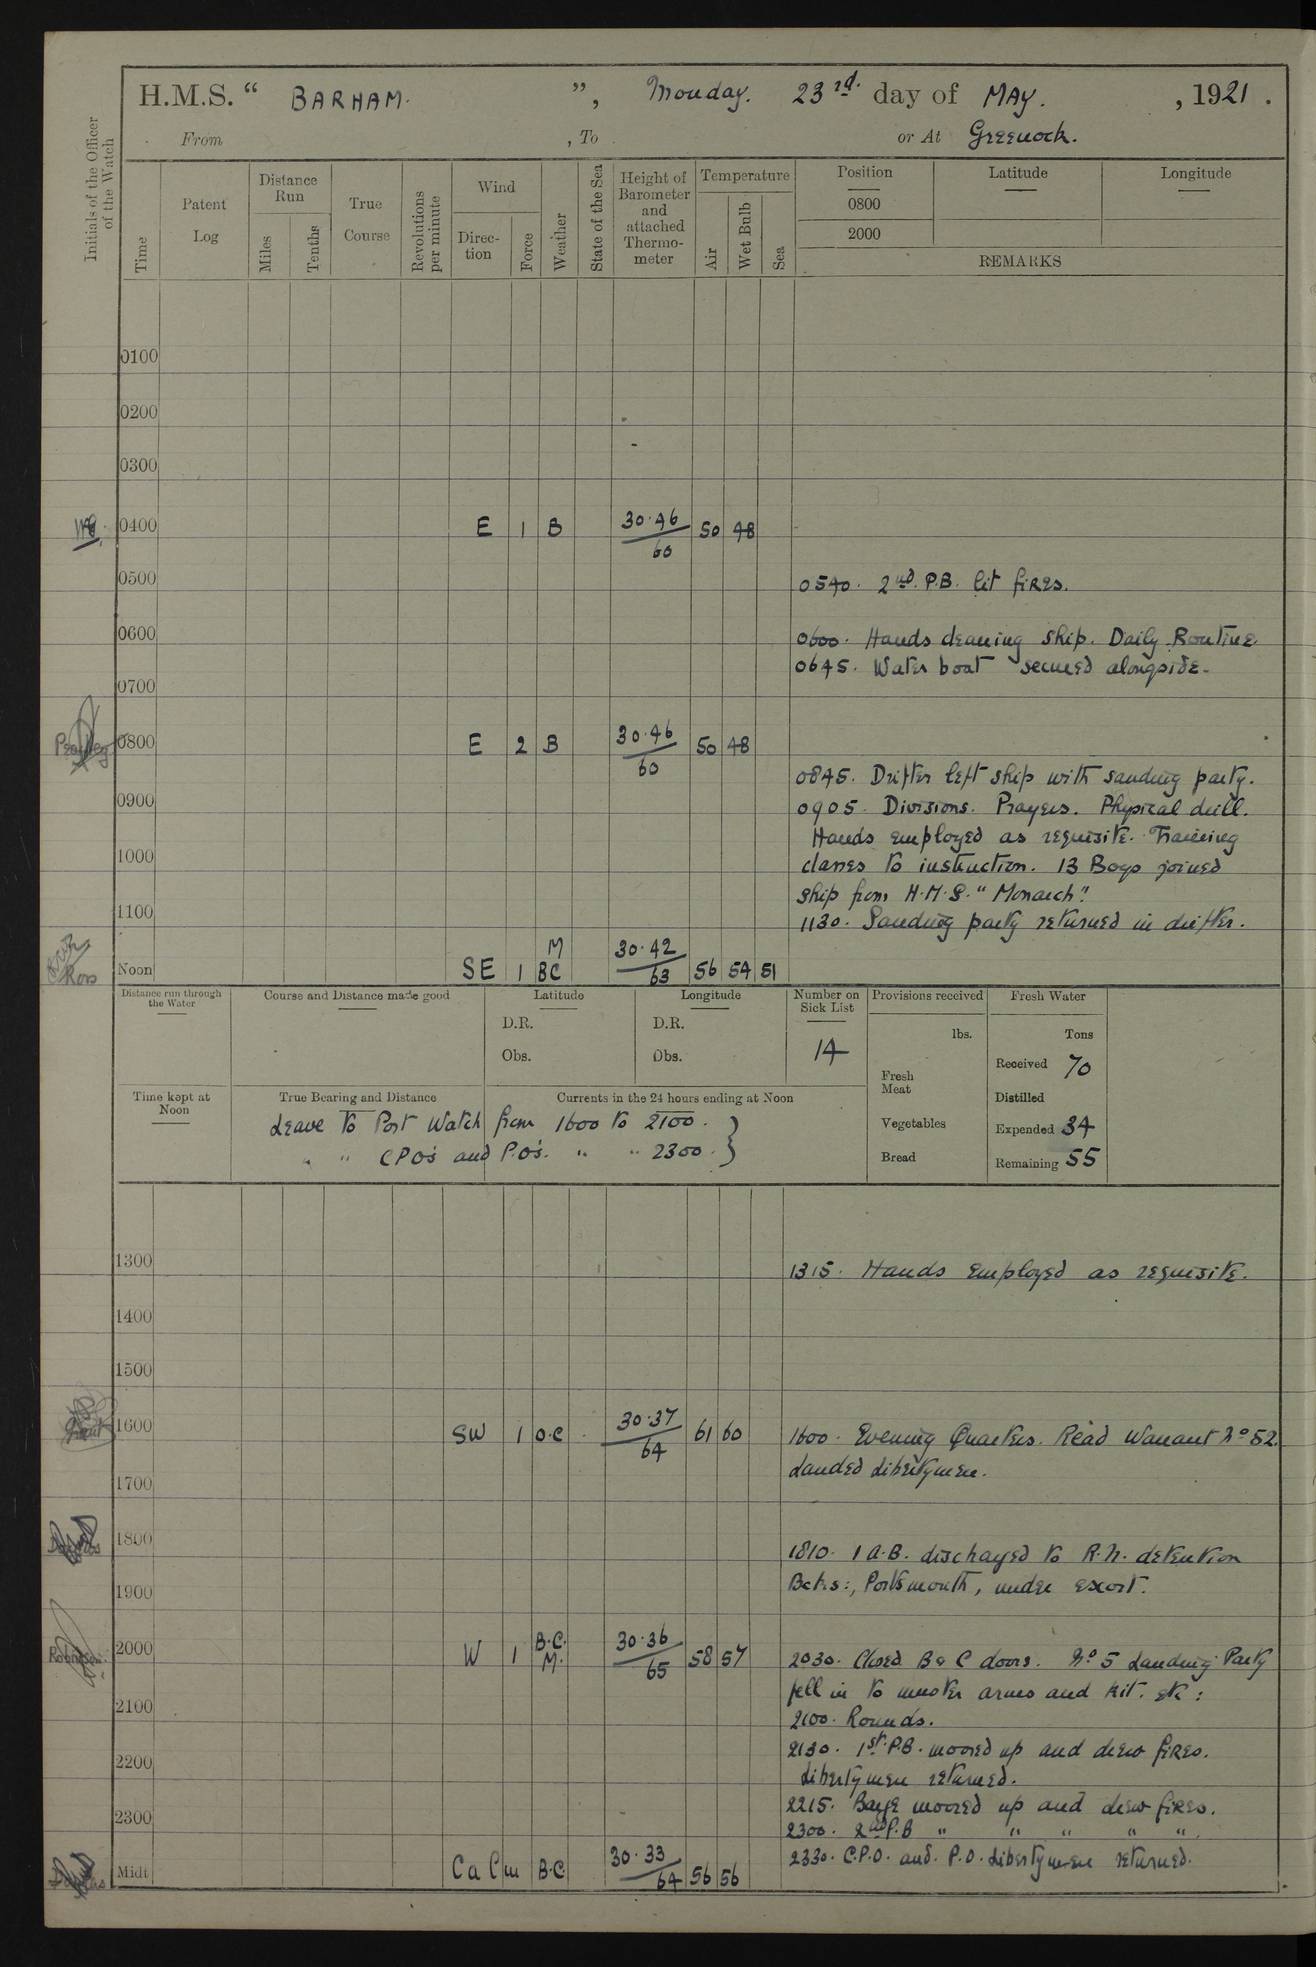 H.M.S. “ BARHAM. ”, Monday. 23rd. day of MAY. , 1921 .
From , To or At Greenock.
Initials of the Officer of the Watch
Time
Patent Log
Distance Run
Miles
Tenths
True Course
Revolutions per minute
Wind
Direc-tion
Force
Weather
State of the Sea
Height of Barometer and attached Thermo-meter
Temperature
Air
Wet Bulb
Sea
Position
0800
2000
Latitude
Longitude
REMARKS
0100
0200
0300
0400 E 1 B 30.46/60 50 48
0500
0540. 2nd. P.B. lit fires.
0600
0600. Hands cleaning ship. Daily Routine.
0645. Water boat secured alongside.
0700
0800 E 2 B 30.46/60 50 48
0845. Drifter left ship with sanding party.
0900
0905. Divisions. Prayers. Physical drill.
Hands employed as requisite. Training
1000
classes to instruction. 13 Boys joined
ship from H.M.S. “Monarch”.
1100
1130. Sanding party returned in drifter.
Ross
Noon SE 1 M BC 30.42/63 56 54 51
Distance run through the Water
Course and Distance made good
Latitude
D.R.
Obs.
Longitude
D.R.
Obs.
Number on Sick List
14
Provisions received
lbs.
Fresh Meat
Vegetables
Bread
Fresh Water
Tons
Received 70
Distilled
Expended 34
Remaining 55
Time kept at Noon
True Bearing and Distance
Currents in the 24 hours ending at Noon
Leave to Port Watch from 1600 to 2100. }
" " CPO's and P.O's. " " 2300.
1300
1315. Hands employed as requisite.
1400
1500
1600 SW 1 O.C 30.37/64 61 60
1600. Evening Quarters. Read Warrant No 52.
Landed libertymen.
1700
1800
1810. 1 A.B. discharged to R.N. detention
Bcks:, Portsmouth, under escort.
1900
2000 W 1 B.C. M. 30.36/65 58 57
2030. Closed B & C doors. No 5 Landing Party
fell in to muster arms and kit. etc:
2100
2100. Rounds.
2130. 1st. P.B. moored up and drew fires.
2200
Libertymen returned.
2215. Barge moored up and drew fires.
2300
2300. 2nd P.B " " " " ".
2330. C.P.O. and. P.O. Libertymen returned.
Midt Calm B.C. 30.33/64 56 56